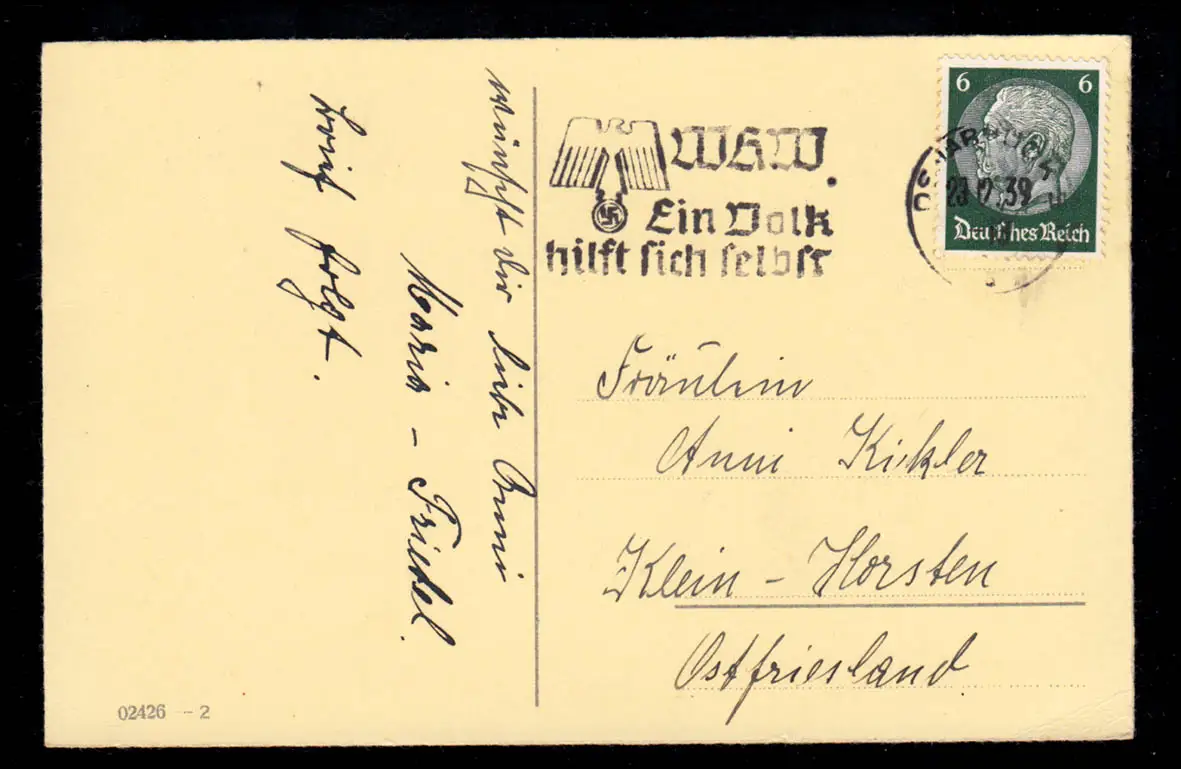 wünscht dir liebe Anni
Maria - Friedel.
Brief folgt.
02426 - 2
WHW.
Ein Volk
hilft sich selbst
6 6
23.12.39
Deutsches Reich
Fräulein
Anni Kickler
Klein - Horsten
Ostfriesland